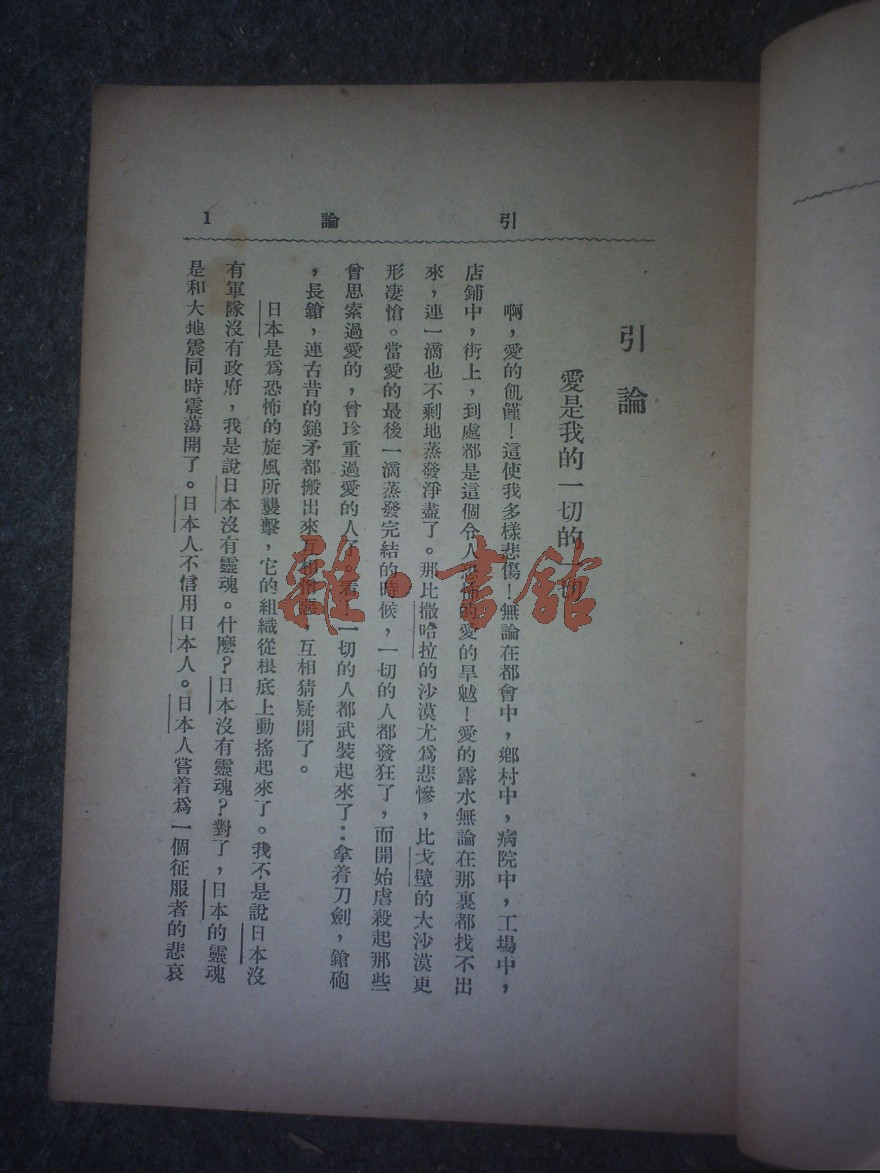 引論 1
引論
愛是我的一切的一切
啊，愛的飢饉！這使我多樣悲傷！無論在都會中，鄉村中，病院中，工場中，
店鋪中，街上，到處都是這個令人恐怖的愛的旱魃！愛的露水無論在那裏都找不出
來，連一滴也不剩地蒸發淨盡了。那比撒哈拉的沙漠尤爲悲慘，比戈壁的大沙漠更
形凄愴。當愛的最後一滴蒸發完結的時候，一切的人都發狂了，而開始虐殺起那些
曾思索過愛的，曾珍重過愛的人了。看！一切的人都武裝起來了：拿着刀劍，鎗砲
，長鎗，連古昔的鎚矛都搬出來互相，互相猜疑開了。
日本是爲恐怖的旋風所襲擊，它的組織從根底上動搖起來了。我不是說日本沒
有軍隊沒有政府，我是說日本沒有靈魂。什麽？日本沒有靈魂？對了，日本的靈魂
是和大地震同時震蕩開了。日本人不信用日本人。日本人嘗着爲一個征服者的悲哀
雜·書館